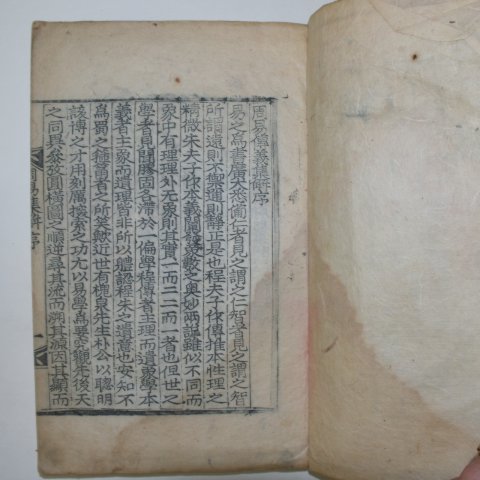 周易傳義集解序
易之為書廣大悉備仁者見之謂之仁智者見之謂之智
所謂遠則不禦邇則靜正是也程夫子作傳推本性理之
精微朱夫子作本義
之奧妙兩說雖似不同而
象中有理理外无象則其實一而二二而一者也但世之
學者見聞膠固者滯於一偏學程傳者主理而遺象學本
義者主象而遺理皆非所以體認程朱之遺意也安知不
為蜀之種
者之所笑歟近世有槐泉先生朴公以聰明
該博之才用刻厲探索之功尤以易學為要
先後天
之同異參攷圓橫圖之順逆尋其流而溯其源因其顯而
周易集解序